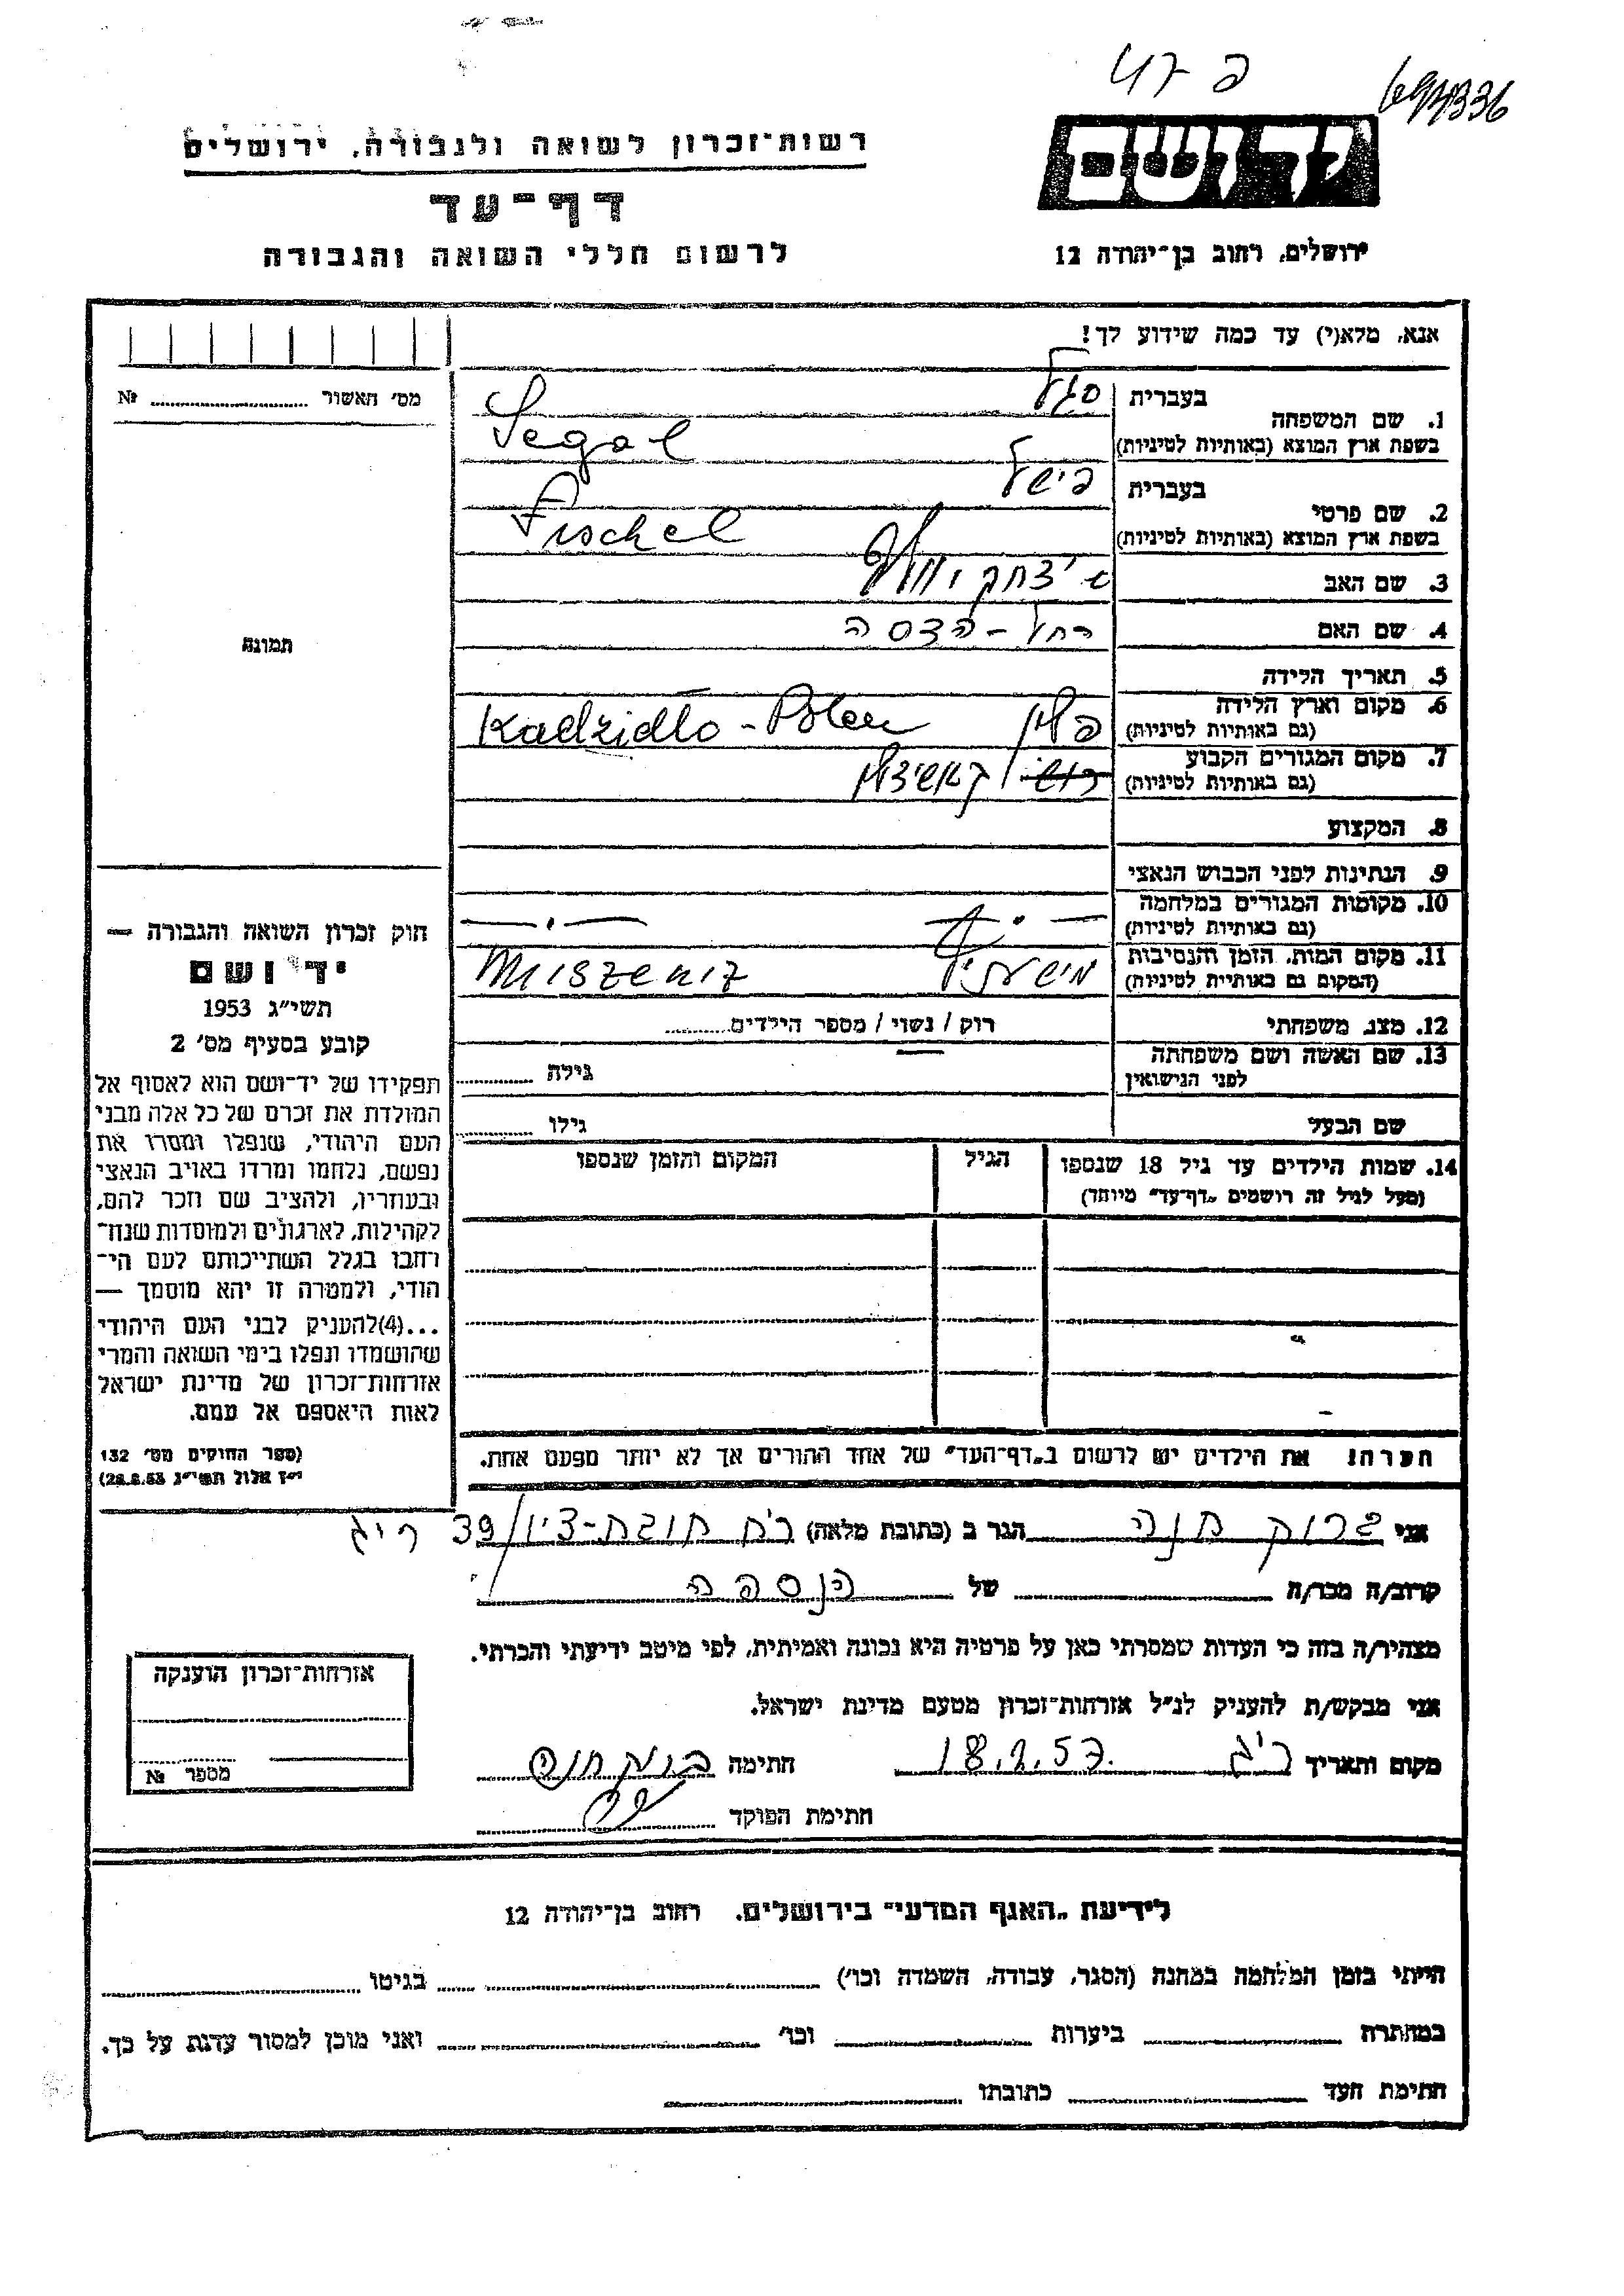 פ -47
רשות־זכרון לשואה ולגבורה, ירושלים
יד ושם
דף־עד
לרשום חללי השואה והגבורה
ירושלים, רחוב בן־יהודה 12
אנא, מלא(י) עד כמה שידוע לך!
מס׳ האשור № 
1. שם המשפחה
בעברית סגל
בשפת ארץ המוצא (באותיות לטיניות) Segal
2. שם פרטי
בעברית פישל
בשפת ארץ המוצא (באותיות לטיניות) Fischel
3. שם האב יצחק
4. שם האם רחל - הדסה
5. תאריך הלידה
6. מקום וארץ הלידה (גם באותיות לטיניות) פולין Kadzidlo - Polen
7. מקום המגורים הקבוע (גם באותיות לטיניות)
8. המקצוע
9. הנתינות לפני הכבוש הנאצי
10. מקומות המגורים במלחמה (גם באותיות לטיניות)
11. מקום המות, הזמן והנסיבות (המקום גם באותיות לטיניות) Miszeniz
12. מצב משפחתי רוק / נשוי / מספר הילדים
13. שם האשה ושם משפחתה לפני הנישואין
גילה
שם הבעל
גילו
14. שמות הילדים עד גיל 18 שנספו
(מעל לגיל זה רושמים „דף־עד״ מיוחד)
הגיל
המקום והזמן שנספו
הערה: את הילדים יש לרשום ב„דף־העד״ של אחד ההורים אך לא יותר מפעם אחת.
תמונה
חוק זכרון השואה והגבורה —
יד ושם
תשי״ג 1953
קובע בסעיף מס׳ 2
תפקידו של יד־ושם הוא לאסוף אל
המולדת את זכרם של כל אלה מבני
העם היהודי, שנפלו ומסרו את
נפשם, נלחמו ומרדו באויב הנאצי
ובעוזריו, ולהציב שם וזכר להם,
לקהילות, לארגונים ולמוסדות שנח־
רבו בגלל השתייכותם לעם הי־
הודי, ולמטרה זו יהא מוסמך —
...(4)להעניק לבני העם היהודי
שהושמדו ונפלו בימי השואה והמרי
אזרחות־זכרון של מדינת ישראל
לאות היאספם אל עמם.
(ספר החוקים מס׳ 132
י״ז אלול תשי״ג 28.8.53)
אני ברוק חנה הגר ב (כתובת מלאה) רח חובת-ציון 39 ר״ג
קרוב/ה מכר/ה של הנספה
מצהיר/ה בזה כי העדות שמסרתי כאן על פרטיה היא נכונה ואמיתית, לפי מיטב ידיעתי והכרתי.
אני מבקש/ת להעניק לנ״ל אזרחות־זכרון מטעם מדינת ישראל.
מקום ותאריך ר״ג 18. .57 חתימה ברוק חנה
חתימת הפוקד
אזרחות־זכרון הוענקה
מספר №
לידיעת „האגף המדעי״ בירושלים, רחוב בן־יהודה 12
הייתי בזמן המלחמה במחנה (הסגר, עבודה, השמדה וכו׳) בגיטו
במחתרת ביערות וכו׳ ואני מוכן למסור עדות על כך.
חתימת העד כתובתו